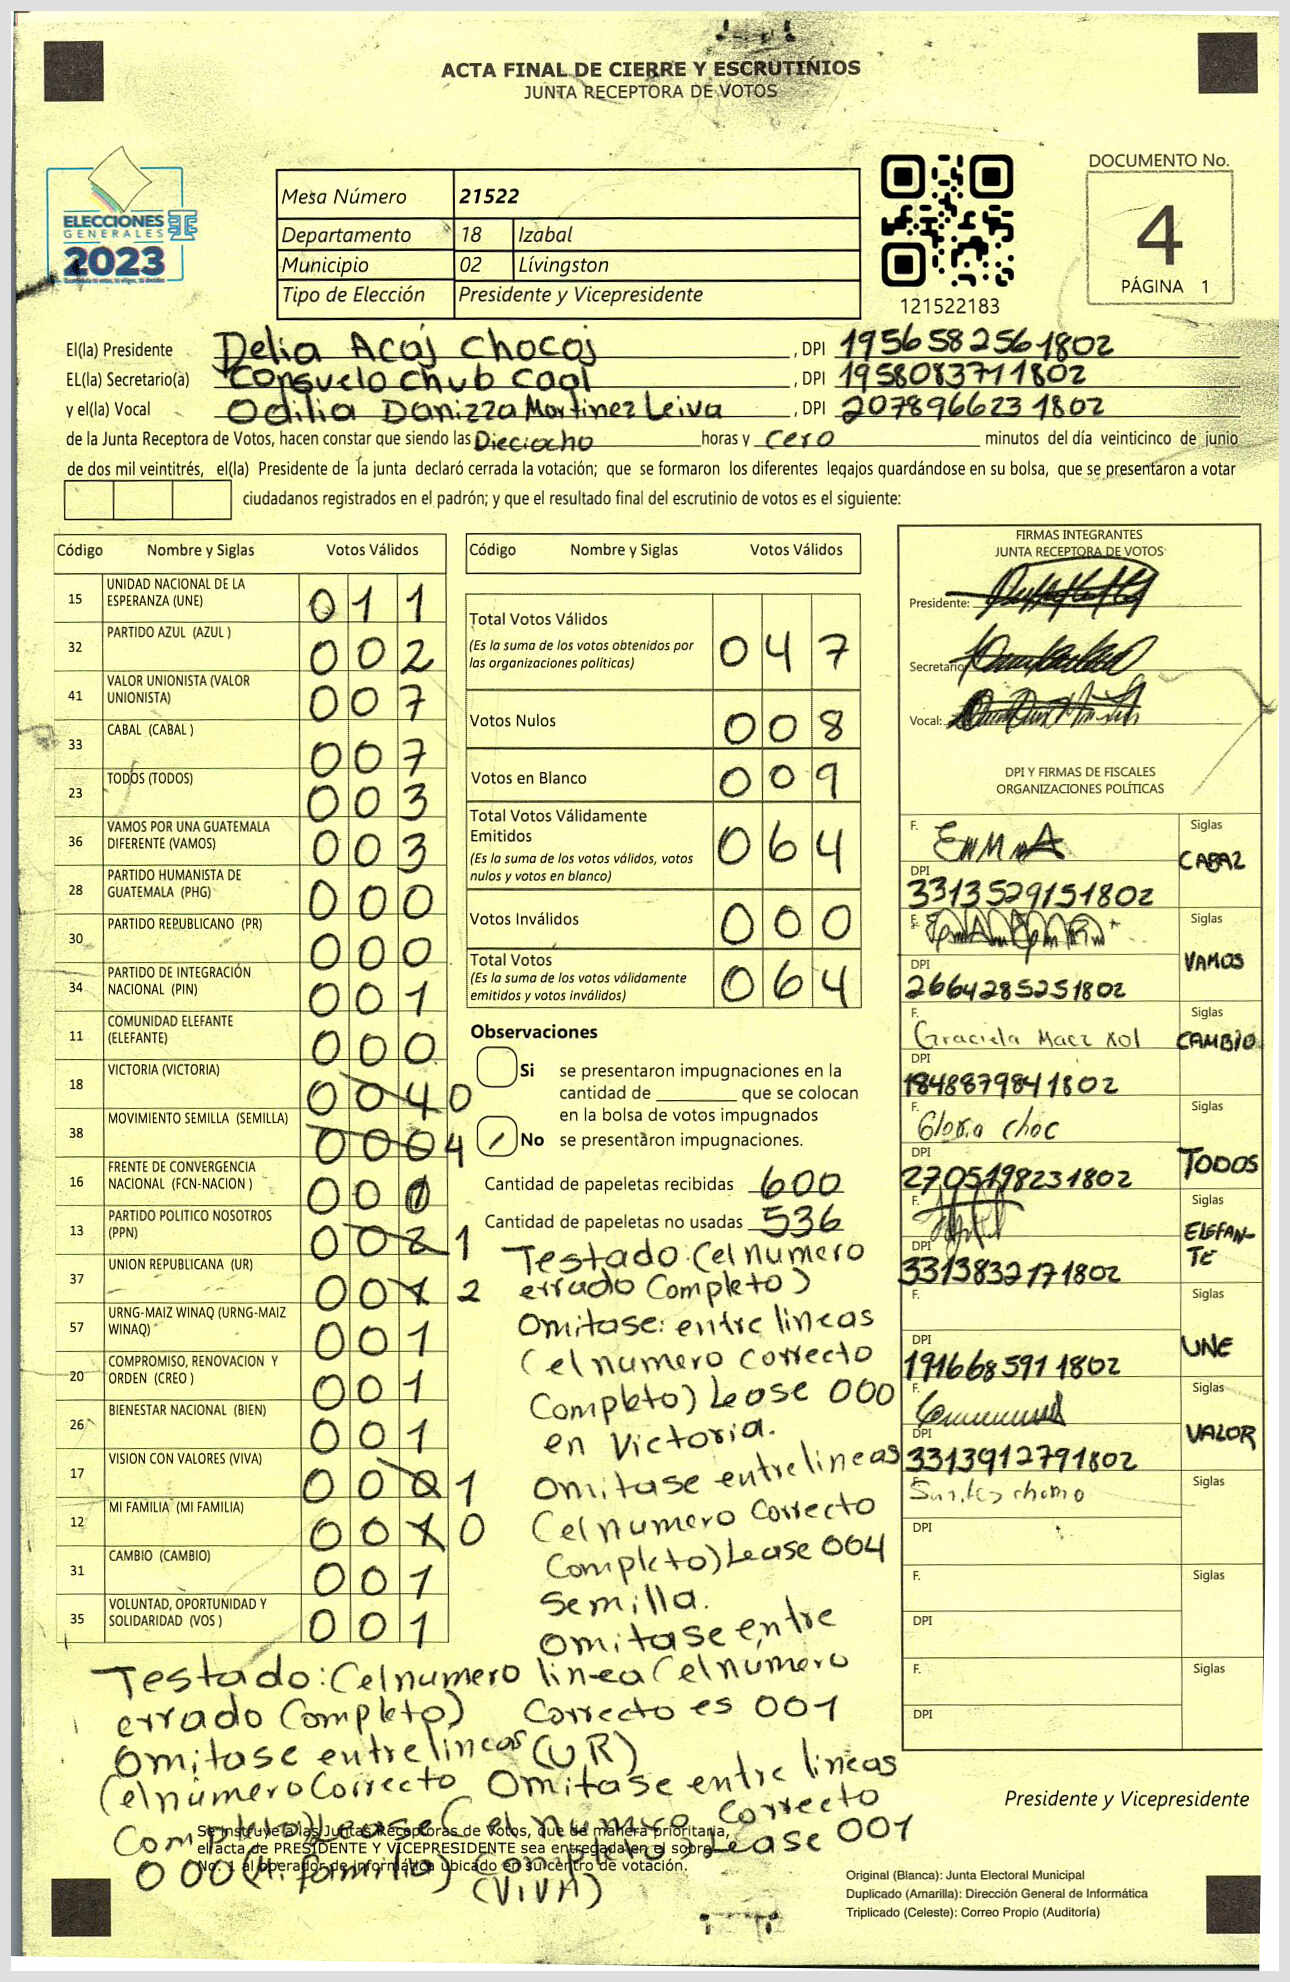 ACTA FINAL DE CIERRE Y ESCRUTINIOS
JUNTA RECEPTORA DE VOTOS
ELECCIONES
GENERALES
2023
Mesa Número 21522
Departamento 18 Izabal
Municipio 02 Lívingston
Tipo de Elección Presidente y Vicepresidente
121522183
DOCUMENTO No.
4
PÁGINA 1
El(la) Presidente Delia Acoj Chocoj , DPI 1956582561802
EL(la) Secretario(a) Consuelo Chub Caal , DPI 1958083711802
y el(la) Vocal Odilia Danizza Martinez Leiva , DPI 2078966231802
de la Junta Receptora de Votos, hacen constar que siendo las Dieciocho horas y cero minutos del día veinticinco de junio
de dos mil veintitrés, el(la) Presidente de la junta declaró cerrada la votación; que se formaron los diferentes legajos guardándose en su bolsa, que se presentaron a votar
ciudadanos registrados en el padrón; y que el resultado final del escrutinio de votos es el siguiente:
Código Nombre y Siglas Votos Válidos
15 UNIDAD NACIONAL DE LA ESPERANZA (UNE) 011
32 PARTIDO AZUL (AZUL ) 002
41 VALOR UNIONISTA (VALOR UNIONISTA) 007
33 CABAL (CABAL ) 007
23 TODOS (TODOS) 003
36 VAMOS POR UNA GUATEMALA DIFERENTE (VAMOS) 003
28 PARTIDO HUMANISTA DE GUATEMALA (PHG) 000
30 PARTIDO REPUBLICANO (PR) 000
34 PARTIDO DE INTEGRACIÓN NACIONAL (PIN) 001
11 COMUNIDAD ELEFANTE (ELEFANTE) 000
18 VICTORIA (VICTORIA) 004 0
38 MOVIMIENTO SEMILLA (SEMILLA) 000 4
16 FRENTE DE CONVERGENCIA NACIONAL (FCN-NACION ) 00
13 PARTIDO POLITICO NOSOTROS (PPN) 002 1
37 UNION REPUBLICANA (UR) 001 2
57 URNG-MAIZ WINAQ (URNG-MAIZ WINAQ) 001
20 COMPROMISO, RENOVACION Y ORDEN (CREO ) 001
26 BIENESTAR NACIONAL (BIEN) 001
17 VISION CON VALORES (VIVA) 000 1
12 MI FAMILIA (MI FAMILIA) 001 0
31 CAMBIO (CAMBIO) 001
35 VOLUNTAD, OPORTUNIDAD Y SOLIDARIDAD (VOS ) 001
Código Nombre y Siglas Votos Válidos
Total Votos Válidos 047
(Es la suma de los votos obtenidos por
las organizaciones políticas)
Votos Nulos 008
Votos en Blanco 009
Total Votos Válidamente
Emitidos 064
(Es la suma de los votos válidos, votos
nulos y votos en blanco)
Votos Inválidos 000
Total Votos 064
(Es la suma de los votos válidamente
emitidos y votos inválidos)
Observaciones
Si se presentaron impugnaciones en la
cantidad de ________ que se colocan
en la bolsa de votos impugnados
No se presentaron impugnaciones.
Cantidad de papeletas recibidas 600
Cantidad de papeletas no usadas 536
Testado: (el numero
errado Completo)
Omitase: entre lineas
(el numero correcto
Completo) Lease 000
en Victoria.
Omitase entre lineas
(el numero Correcto
Completo) Lease 004
Semilla.
Omitase entre
linea (el número
Correcto es 001
Testado: (el numero
errado Completo)
Omitase entre líneas (UR)
(el número Correcto
Completo) Lease
000 (Mi familia)
Omitase entre lineas
(el numero Correcto
Completo) Lease 001
(VIVA)
Se instruye a las Juntas Receptoras de Votos, que de manera prioritaria,
el acta de PRESIDENTE Y VICEPRESIDENTE sea entregada en el sobre
No. 1 al operador de informática ubicado en su centro de votación.
FIRMAS INTEGRANTES
JUNTA RECEPTORA DE VOTOS
Presidente:
Secretario
Vocal:
DPI Y FIRMAS DE FISCALES
ORGANIZACIONES POLÍTICAS
F. Emma Siglas
DPI 3313529151802 CABAL
F. Siglas
DPI 2664285251802 VAMOS
F. Graciela Macz Xol Siglas
DPI 1848879841802 CAMBIO
F. Gloria choc Siglas
DPI 2705198231802 TODOS
F. Siglas
DPI 3313832171802 ELEFAN-
TE
F. Siglas
DPI 1916685911802 UNE
F. Siglas
DPI 3313912791802 VALOR
Siglas
DPI
F. Siglas
DPI
F. Siglas
DPI
Presidente y Vicepresidente
Original (Blanca): Junta Electoral Municipal
Duplicado (Amarilla): Dirección General de Informática
Triplicado (Celeste): Correo Propio (Auditoría)